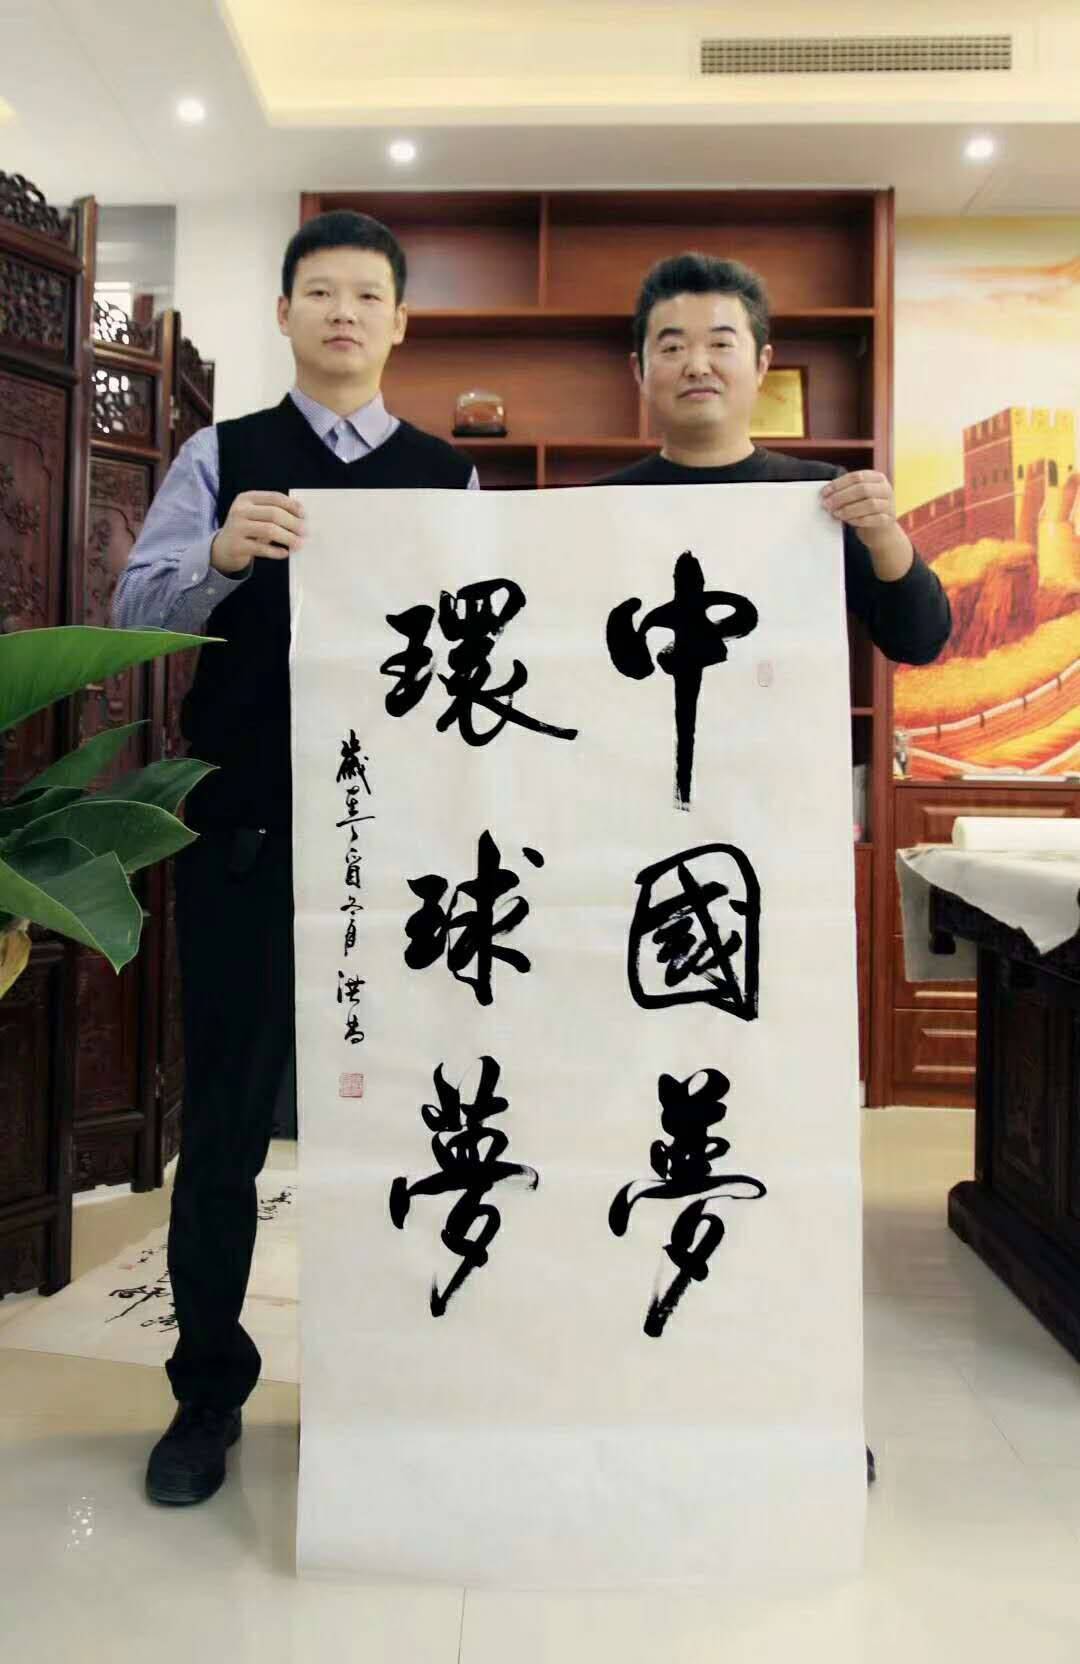 中國夢
環球夢
歲在丁酉冬月洪芳